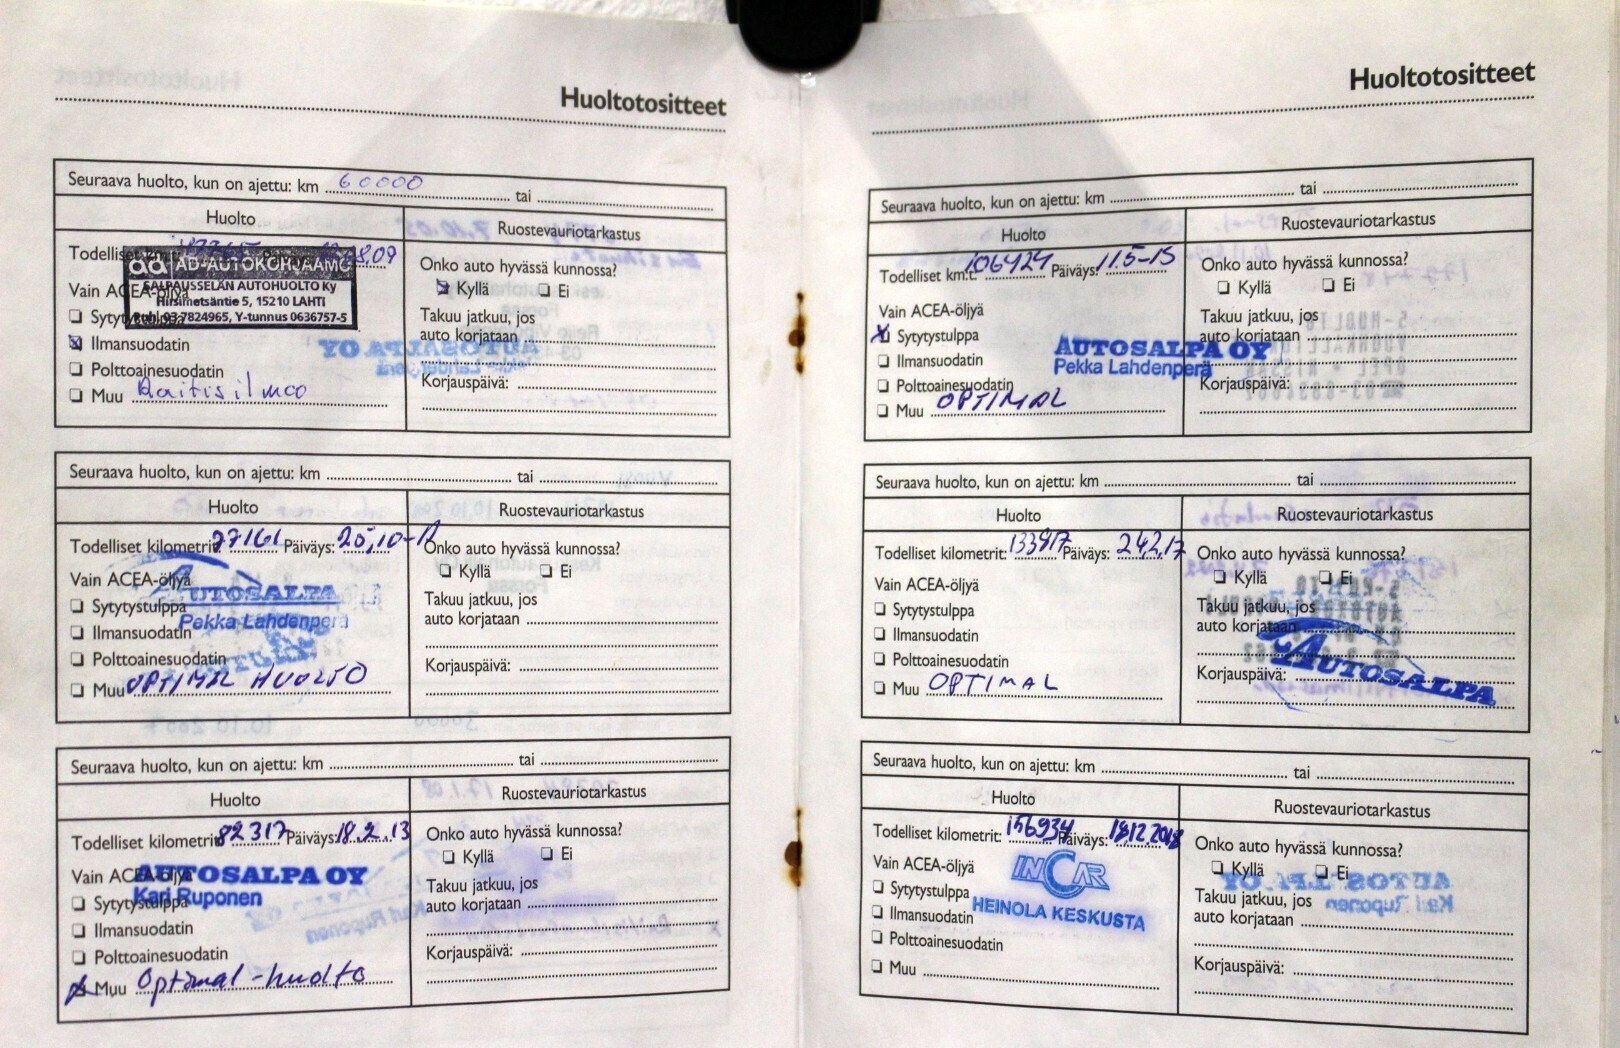 Huoltotositteet
Seuraava huolto, kun on ajettu: km 60000 tai
Huolto
Ruostevauriotarkastus
Todelliset
8.09
ad AD-AUTOKORJAAMO
SALPAUSSELÄN AUTOHUOLTO Ky
Hirsimetsäntie 5, 15210 LAHTI
Puh. 03 7824965, Y-tunnus 0636757-5
Vain ACEA-öljyä
Sytytystulppa
Ilmansuodatin
Polttoainesuodatin
Muu Raitisilma
Onko auto hyvässä kunnossa?
Kyllä Ei
Takuu jatkuu, jos
auto korjataan
Korjauspäivä:
Seuraava huolto, kun on ajettu: km tai
Huolto
Ruostevauriotarkastus
Todelliset kilometrit: 77161 Päiväys: 25,10-12
Vain ACEA-öljyä
AUTOSALPA
Sytytystulppa
Pekka Lahdenperä
Ilmansuodatin
Polttoainesuodatin
Muu OPTIMAL HUOLTO
Onko auto hyvässä kunnossa?
Kyllä Ei
Takuu jatkuu, jos
auto korjataan
Korjauspäivä:
Seuraava huolto, kun on ajettu: km tai
Huolto
Ruostevauriotarkastus
Todelliset kilometrit: 82317 Päiväys: 18.2.13
Vain ACEA-öljyä
AUTOSALPA OY
Kari Ruponen
Sytytystulppa
Ilmansuodatin
Polttoainesuodatin
Muu Optimal-huolto
Onko auto hyvässä kunnossa?
Kyllä Ei
Takuu jatkuu, jos
auto korjataan
Korjauspäivä:
Huoltotositteet
Seuraava huolto, kun on ajettu: km tai
Huolto
Ruostevauriotarkastus
Todelliset km.t: 106424 Päiväys: 11.5-15
Vain ACEA-öljyä
Sytytystulppa
Ilmansuodatin
Polttoainesuodatin
Muu OPTIMAL
AUTOSALPA OY
Pekka Lahdenperä
Onko auto hyvässä kunnossa?
Kyllä Ei
Takuu jatkuu, jos
auto korjataan
Korjauspäivä:
Seuraava huolto, kun on ajettu: km tai
Huolto
Ruostevauriotarkastus
Todelliset kilometrit: 133917 Päiväys: 24.2.17
Vain ACEA-öljyä
Sytytystulppa
Ilmansuodatin
Polttoainesuodatin
Muu OPTIMAL
Onko auto hyvässä kunnossa?
Kyllä Ei
Takuu jatkuu, jos
auto korjataan
Korjauspäivä:
AUTOSALPA
Seuraava huolto, kun on ajettu: km tai
Huolto
Ruostevauriotarkastus
Todelliset kilometrit: 156934 Päiväys: 18,12.2018
Vain ACEA-öljyä
INCAR
HEINOLA KESKUSTA
Sytytystulppa
Ilmansuodatin
Polttoainesuodatin
Muu
Onko auto hyvässä kunnossa?
Kyllä Ei
Takuu jatkuu, jos
auto korjataan
Korjauspäivä: